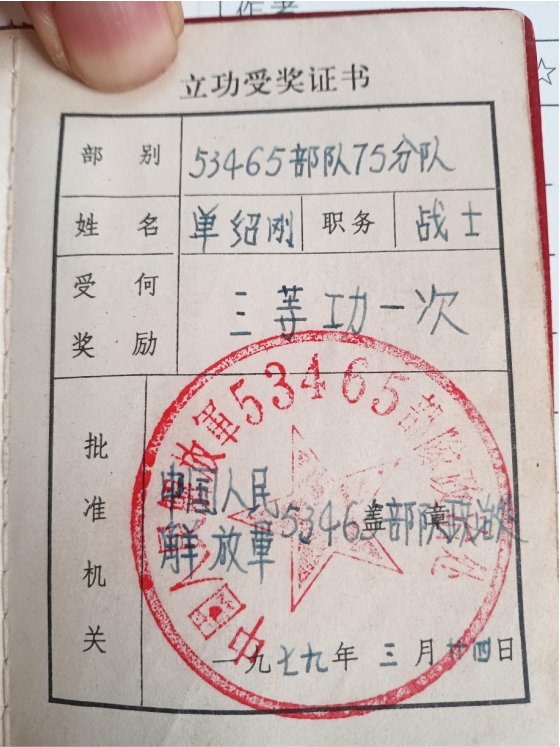 作者
☆
立功受奖证书
部别 53465部队75分队
姓名 单绍刚 职务 战士
受何奖励 三等功一次
批准机关
中国人民解放军53465部队政治处
中国人民
解放军53465部队政治处
盖章
一九七九年三月廿四日